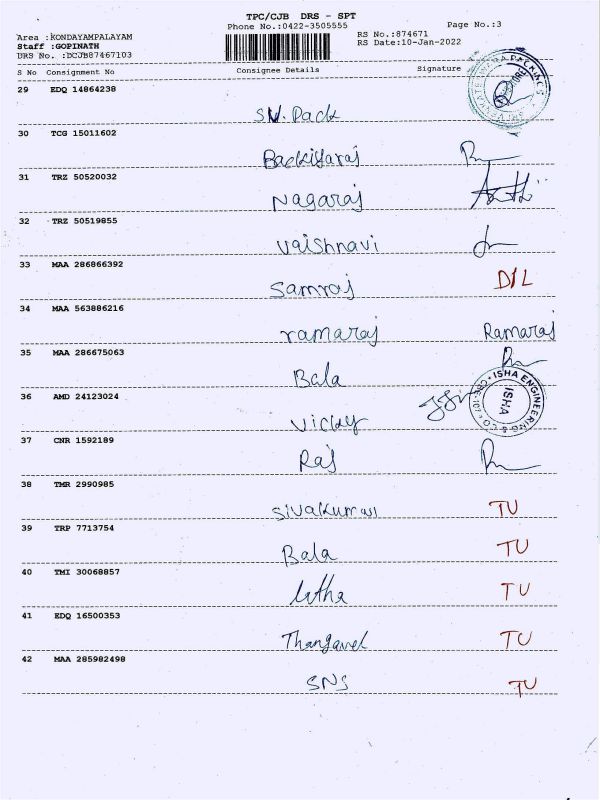 TPC/CJB DRS - SPT
Phone No.:0422-3505555
Page No.:3
Area :KONDAYAMPALAYAM
RS No.:874671
Staff :GOPINATH
RS Date:10-Jan-2022
DRS No. :DCJB87467103
S No Consignment No Consignee Details Signature
29 EDQ 14864238
SN. Pack
30 TCG 15011602
Backiyaraj
31 TRZ 50520032
Nagaraj
32 TRZ 50519855
Vaishnavi
33 MAA 286866392
Samraj D/L
34 MAA 563886216
ramaraj Ramaraj
35 MAA 286675063
Bala
36 AMD 24123024
ISHA ENGINEERING & CO
ISHA
Vicky
37 CNR 1592189
Raj
38 TMR 2990985
Sivakumar TU
39 TRP 7713754
Bala TU
40 TMI 30068857
latha TU
41 EDQ 16500353
Thangavel TU
42 MAA 285982498
SNS TU